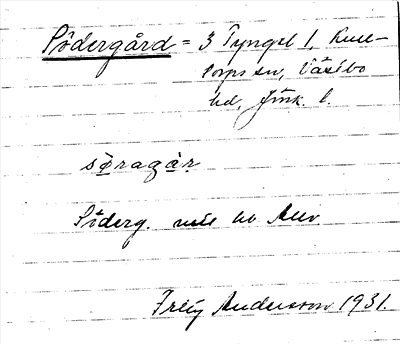 Södergård = 3 Tyngel 1, Kull-
torps sn, Västbo
hd, Jönk. l.
söragår
Söderg.
Frey Andersson 1931.